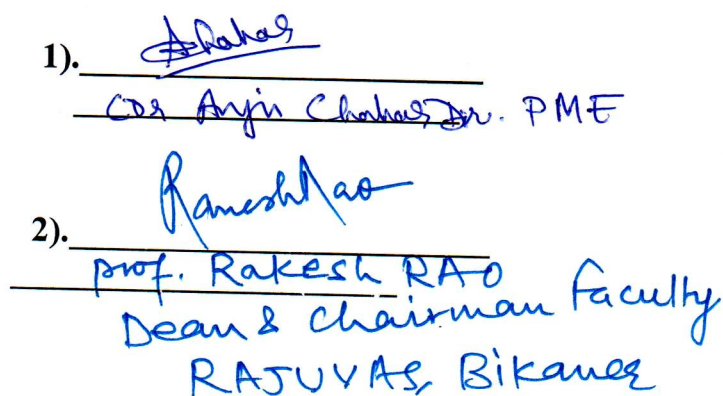 1). AChahar
(Dr Anju Chahar, Dr. PME
2). RameshRao
prof. Rakesh RAO
Dean & Chairman faculty
RAJUVAS, Bikaner